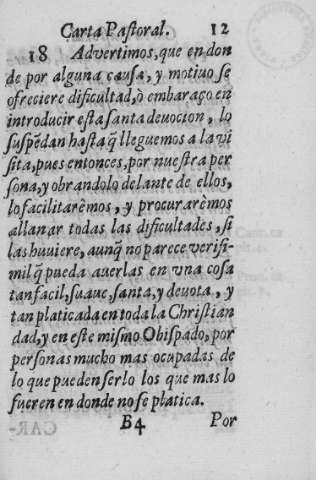 Carta Pastoral. 12
18 Advertimos, que en don
de por alguna causa, y motiuo se
ofreciere dificultad, ò embaraço en
introducir esta santa deuocion, lo
suspẽdan hasta q̃ lleguemos a la vi
sita, pues entonces, por nuestra per
sona, y obrandolo delante de ellos,
lo facilitarêmos, y procurarêmos
allanar todas las dificultades, si
las huuiere, aunq̃ no parece verisi-
mil q̃ pueda auerlas en vna cosa
tan facil, suaue, santa, y deuota, y
tan platicada en toda la Christian
dad, y en este mismo Obispado, por
personas mucho mas ocupadas de
lo que pueden serlo los que mas lo
fueren en donde no se platica.
B4 Por